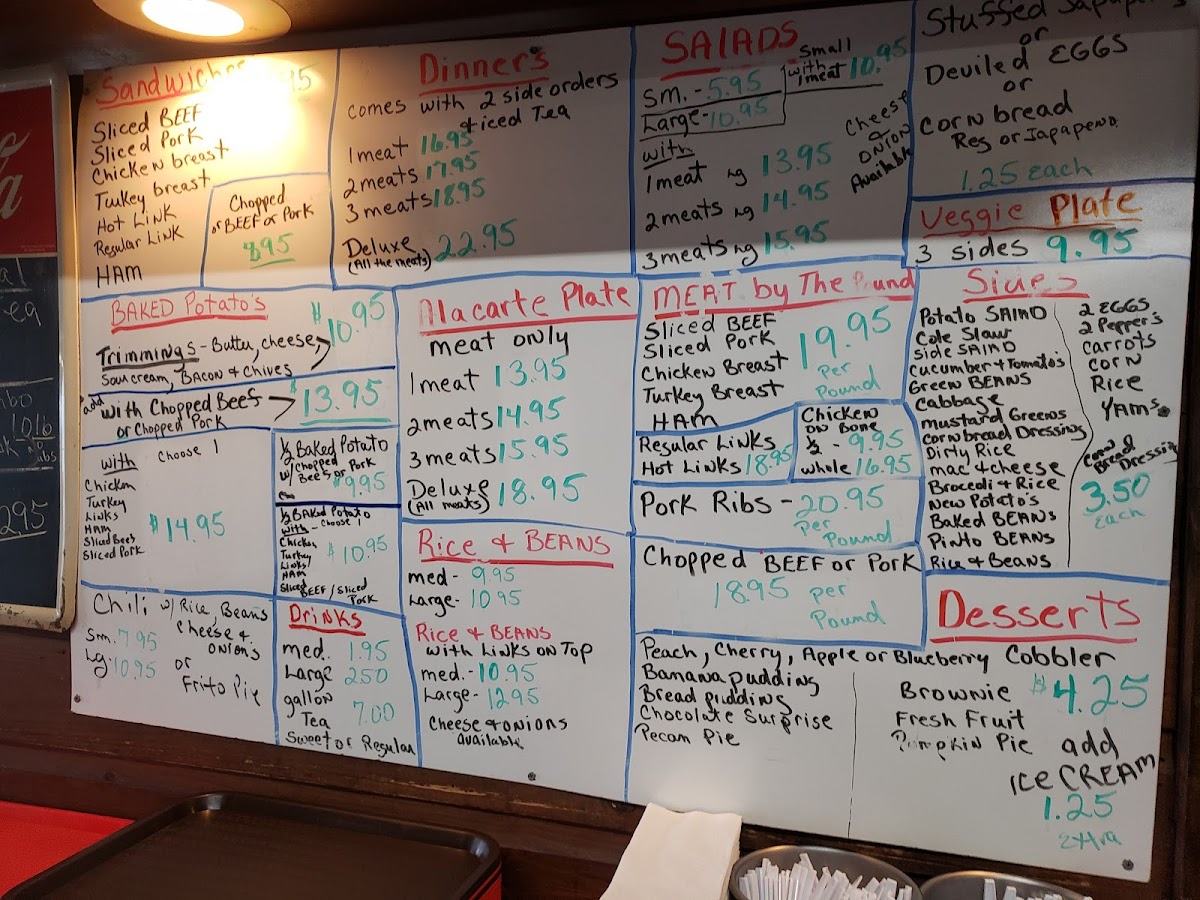 Sandwiches
Sliced BEEF
Sliced Pork
Chicken breast
Turkey breast
Hot Link
Regular Link
HAM
Chopped
or BEEF or Pork
895
Dinner's
comes with 2 side orders
& iced Tea
1 meat 16.95
2 meats 17.95
3 meats 18.95
Deluxe 22.95
(All the meats)
SALADS
Sm. - 5.95
Large - 10.95
Small
with
1 meat 10.95
with
1 meat lg 13.95
2 meats lg 14.95
3 meats lg 15.95
Cheese
&
ONION
Available
Stuffed
or
Deviled EGGS
or
Corn bread
Reg or Japapeno
1.25 Each
Veggie Plate
3 sides 9.95
BAKED Potato's
$10.95
Trimmings - Butter, cheese,
Sour cream, BACON & Chives
add with Chopped Beef
or Chopped Pork
$13.95
with Choose 1
Chicken
Turkey
Links
HAM
Sliced Beef
Sliced Pork
$14.95
1/2 Baked Potato
w/ chopped
Beef or Pork
$9.95
1/2 BAKED Potato
with - Choose 1
Chicken
Turkey
Links
HAM
Sliced
BEEF / Sliced
Pork
$10.95
Chili w/ Rice, Beans
Cheese &
onion's
Sm. 7.95
Lg. 10.95
or
Frito Pie
Drinks
med. 1.95
Large 250
gallon
Tea 7.00
Sweet or Regular
Alacarte Plate
meat only
1 meat 13.95
2 meats 14.95
3 meats 15.95
Deluxe 18.95
(All meats)
Rice & BEANS
med - 9.95
Large - 10 95
Rice & BEANS
with Links on Top
med. - 10.95
Large - 12 95
Cheese & onions
available
MEAT by The Pound
Sliced BEEF
Sliced Pork
Chicken Breast
Turkey Breast
HAM
19.95
per
Pound
Regular Links
Hot Links 18.95
Chicken
on Bone
1/2 - 9.95
whole 16.95
Pork Ribs - 20.95
per
Pound
Chopped BEEF or Pork
18.95 per
Pound
Sides
Potato SAlAD
Cole Slaw
Side SAlAD
Cucumber & Tomato's
Green BEANS
Cabbage
Mustard Greens
Cornbread Dressing
Dirty Rice
mac & cheese
Broccoli & Rice
New Potato's
Baked BEANS
Pinto BEANS
Rice & Beans
2 EGGS
2 Pepper's
Carrots
Corn
Rice
YAMs
Corn
Bread Dressing
3.50
Each
Desserts
Peach, Cherry, Apple or Blueberry Cobbler
Banana pudding
Bread pudding
Chocolate Surprise
Pecan Pie
Brownie
Fresh Fruit
Pumpkin Pie
$4.25
add
ICE CREAM
1.25
extra
295